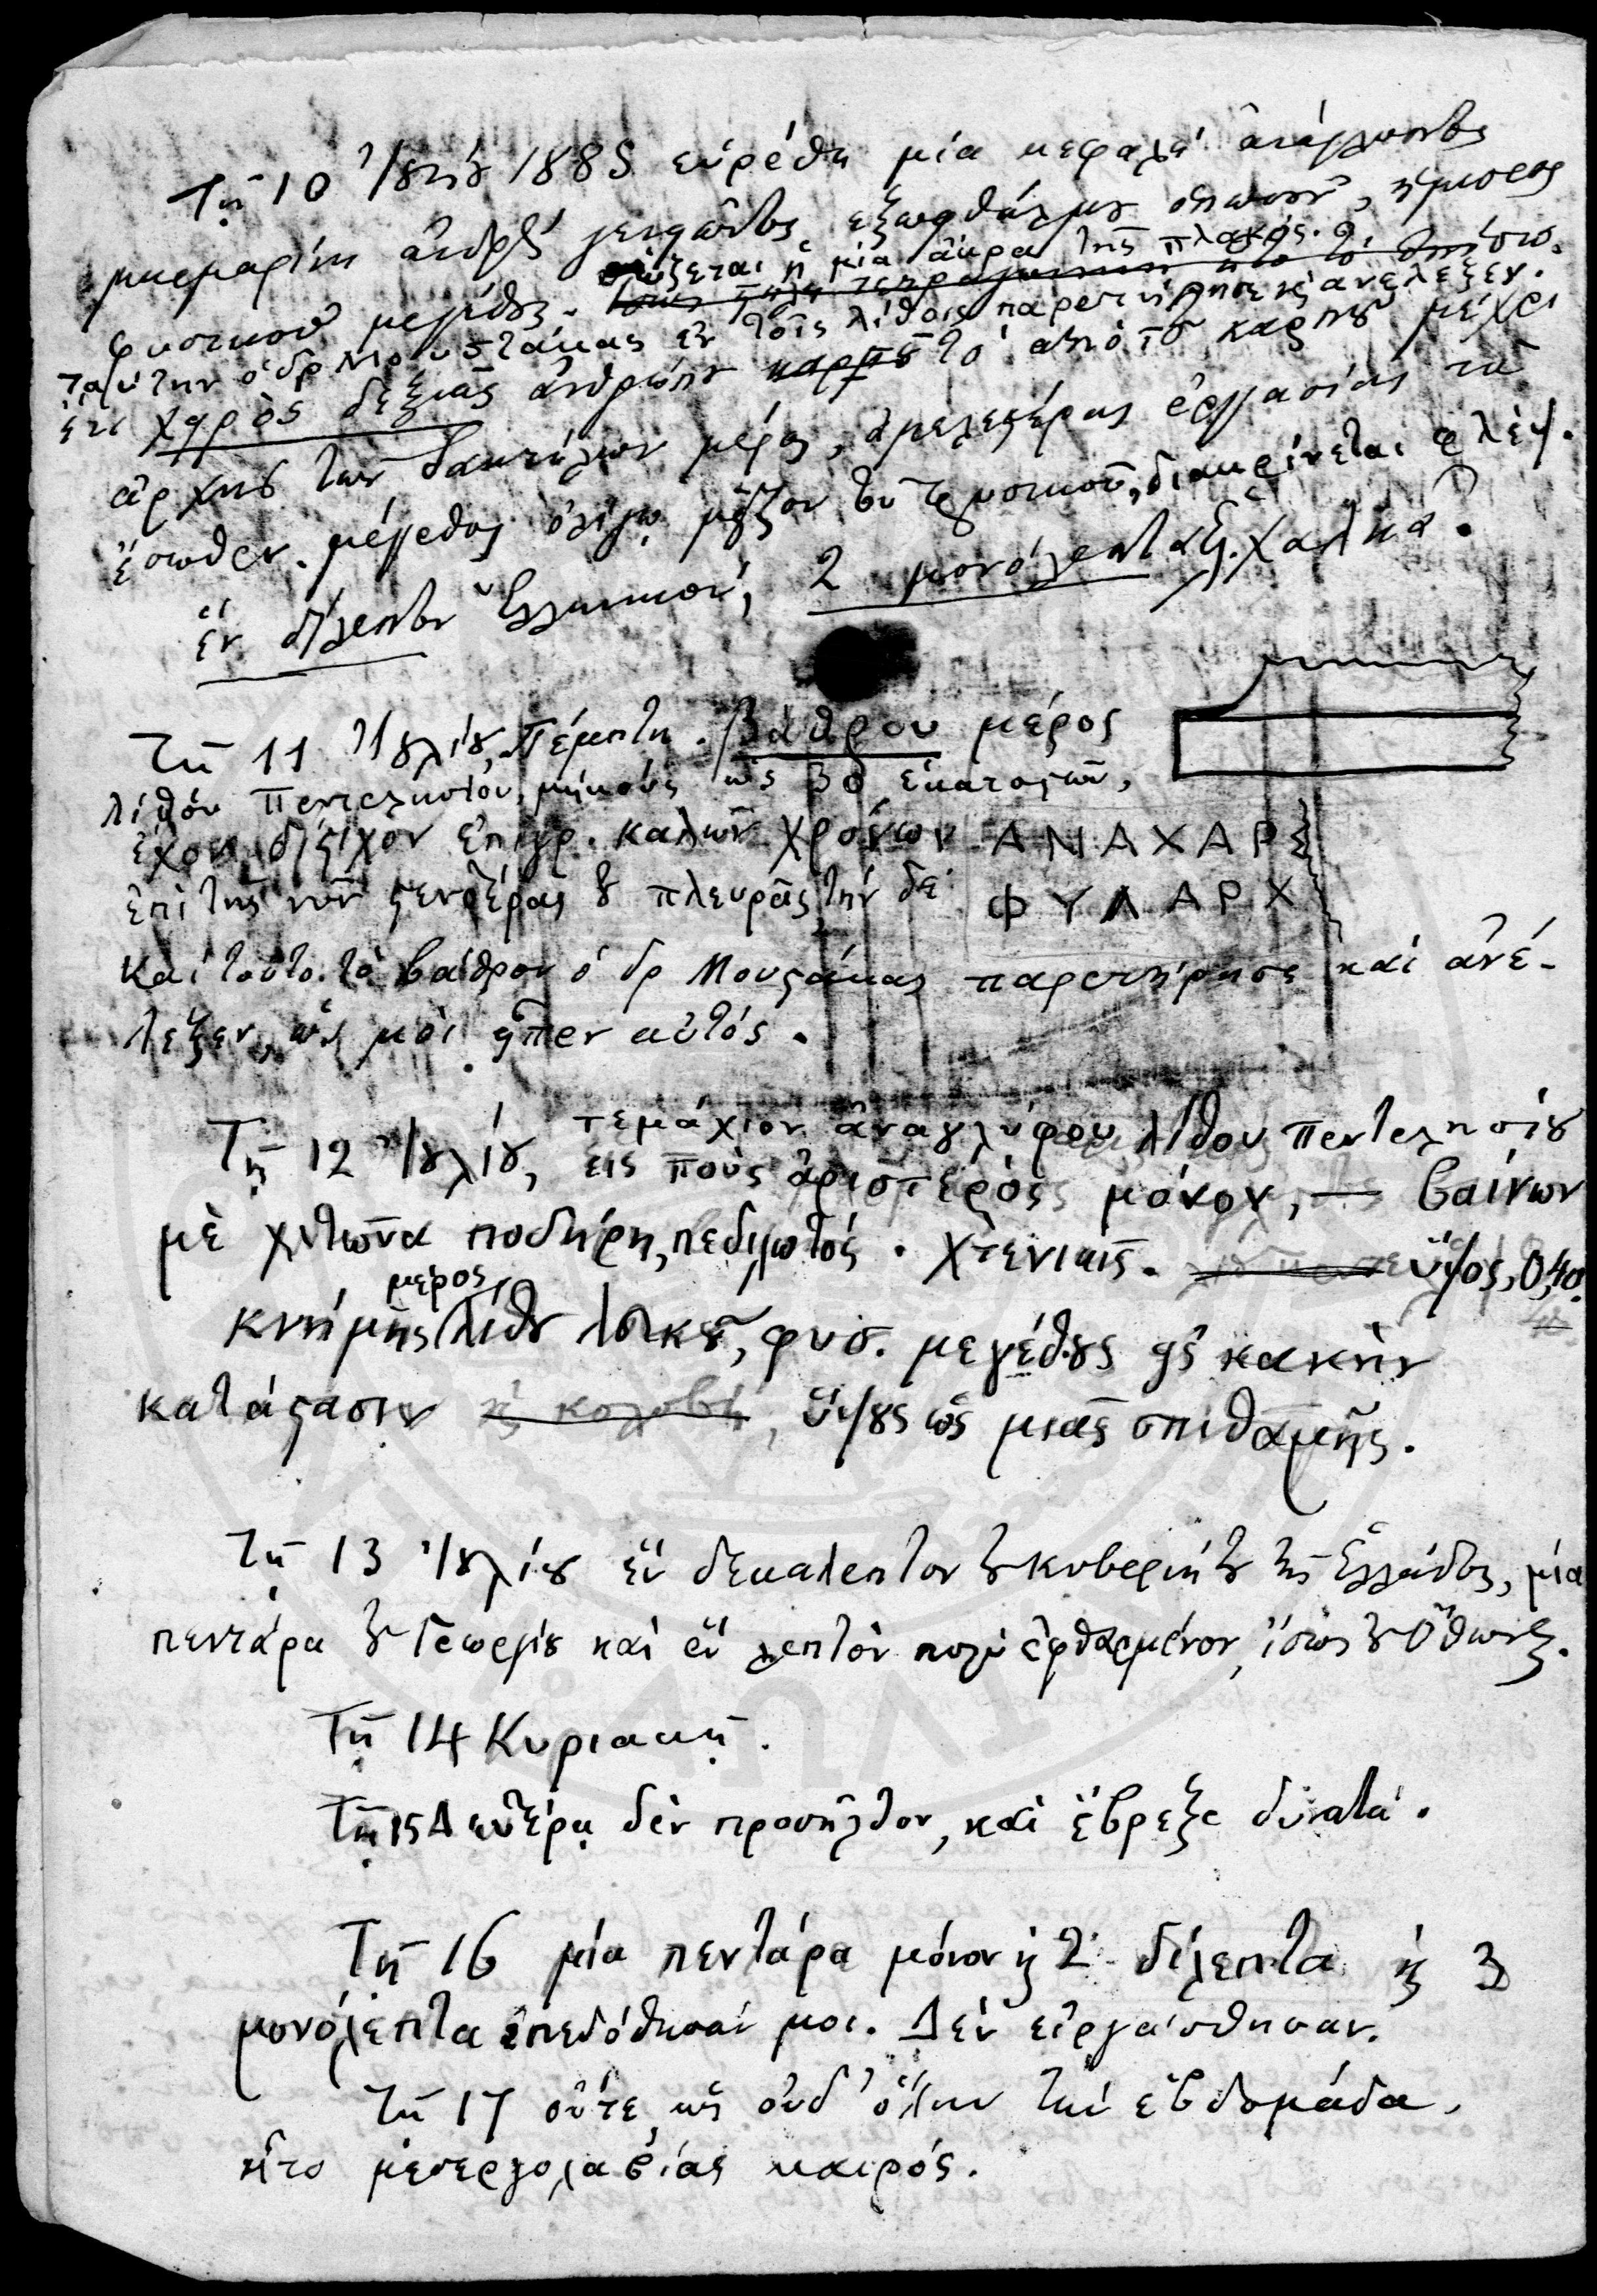 Τῇ 10 Ἰουλίου 1885 εὑρέθη μία κεφαλὴ ἀναγλύπτου
μαρμαρίνη ἀνδρὸς γενειῶντος, ἐξωφθάλμου ὁπωσοῦν, ἥμισεος
φυσικοῦ μεγέθους. σώζεται ἡ μία ἄκρα τῆς πλακός.
ταύτην ὁ δρ Μουστάκας ἐν τοῖς λίθοις παρετήρησε κ ἀνέλεξεν.
ἔτι χειρὸς δεξιᾶς ἀνθρώπου καρποῦ τὸ ἀπὸ τοῦ καρποῦ μέχρι
ἀρχῆς τῶν δακτύλων μέρος, ἀμελεστέρας ἐργασίας τὰ
ἔσωθεν. μέγεθος ὀλίγῳ μεῖζον τοῦ φυσικοῦ, διακρίνεται φλέψ.
ἓν δίλεπτον Ἑλληνικόν, 2 μονόλεπτα χαλκᾶ.
Τῇ 11 Ἰουλίου, Πέμπτῃ. Βάθρου μέρος
λίθου Πεντελησίου, μήκους ὡς 30 ἑκατοστῶν,
ἔχον δίστιχον ἐπιγρ. καλῶν χρόνων ΑΝΑΧΑΡΣ
ἐπὶ τῆς νῦν στενοτέρας πλευρᾶς τήν δε· ΦΥΛΑΡΧ
καὶ τοῦτο τὸ βάθρον ὁ δρ Μουστάκας παρετήρησε καὶ ἀνέ-
λεξεν, ὥς μοι εἶπεν αὐτός.
Τῇ 12 Ἰουλίου, τεμάχιον ἀναγλύφου λίθου Πεντελησίου
εἷς ποὺς ἀριστερὸς μόνον, — βαίνων
μὲ χιτῶνα ποδήρη, πεδιλωτός. χτενιαῖς. ὕψος, 0,40.
κνήμης μέρος λίθου λευκοῦ, φυσ. μεγέθους εἰς κακὴν
κατάστασιν κ κολοβή, ὕψους ὡς μιᾶς σπιθαμῆς.
Τῇ 13 Ἰουλίου ἓν δεκάλεπτον τοῦ κυβερνήτου τῆς Ἑλλάδος, μία
πεντάρα τοῦ Γεωργίου καὶ ἓν λεπτὸν πολὺ ἐφθαρμένον, ἴσως τοῦ Ὄθωνος.
Τῇ 14 Κυριακῇ.
Τῇ 15 Δευτέρᾳ δὲν προσῆλθον, καὶ ἔβρεξε δυνατά.
Τῇ 16 μία πεντάρα μόνον κ 2 δίλεπτα κ 3
μονόλεπτα ἐπεδόθησάν μοι. Δὲν εἰργάσθησαν.
Τῇ 17 οὔτε, ὡς οὐδ' ὅλην τὴν ἑβδομάδα.
ἦτο μεσεργολαβίας καιρός.